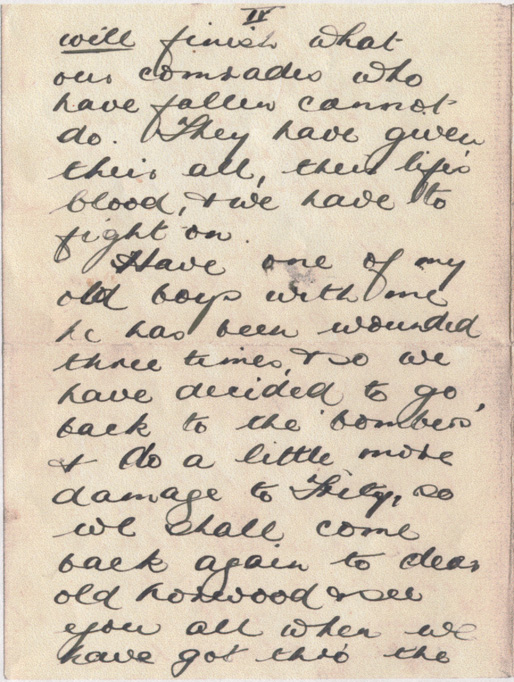 IV
will finish what
our comrades who
have fallen cannot
do. They have given
their all, their life's
blood, & we have to
fight on.
Have one of my
old boys with me
he has been wounded
three times, & so we
have decided to go
back to the 'bombers'
& do a little more
damage to Fritz, so
we shall come
back again to dear
old Norwood & see
you all when we
have got thro' the